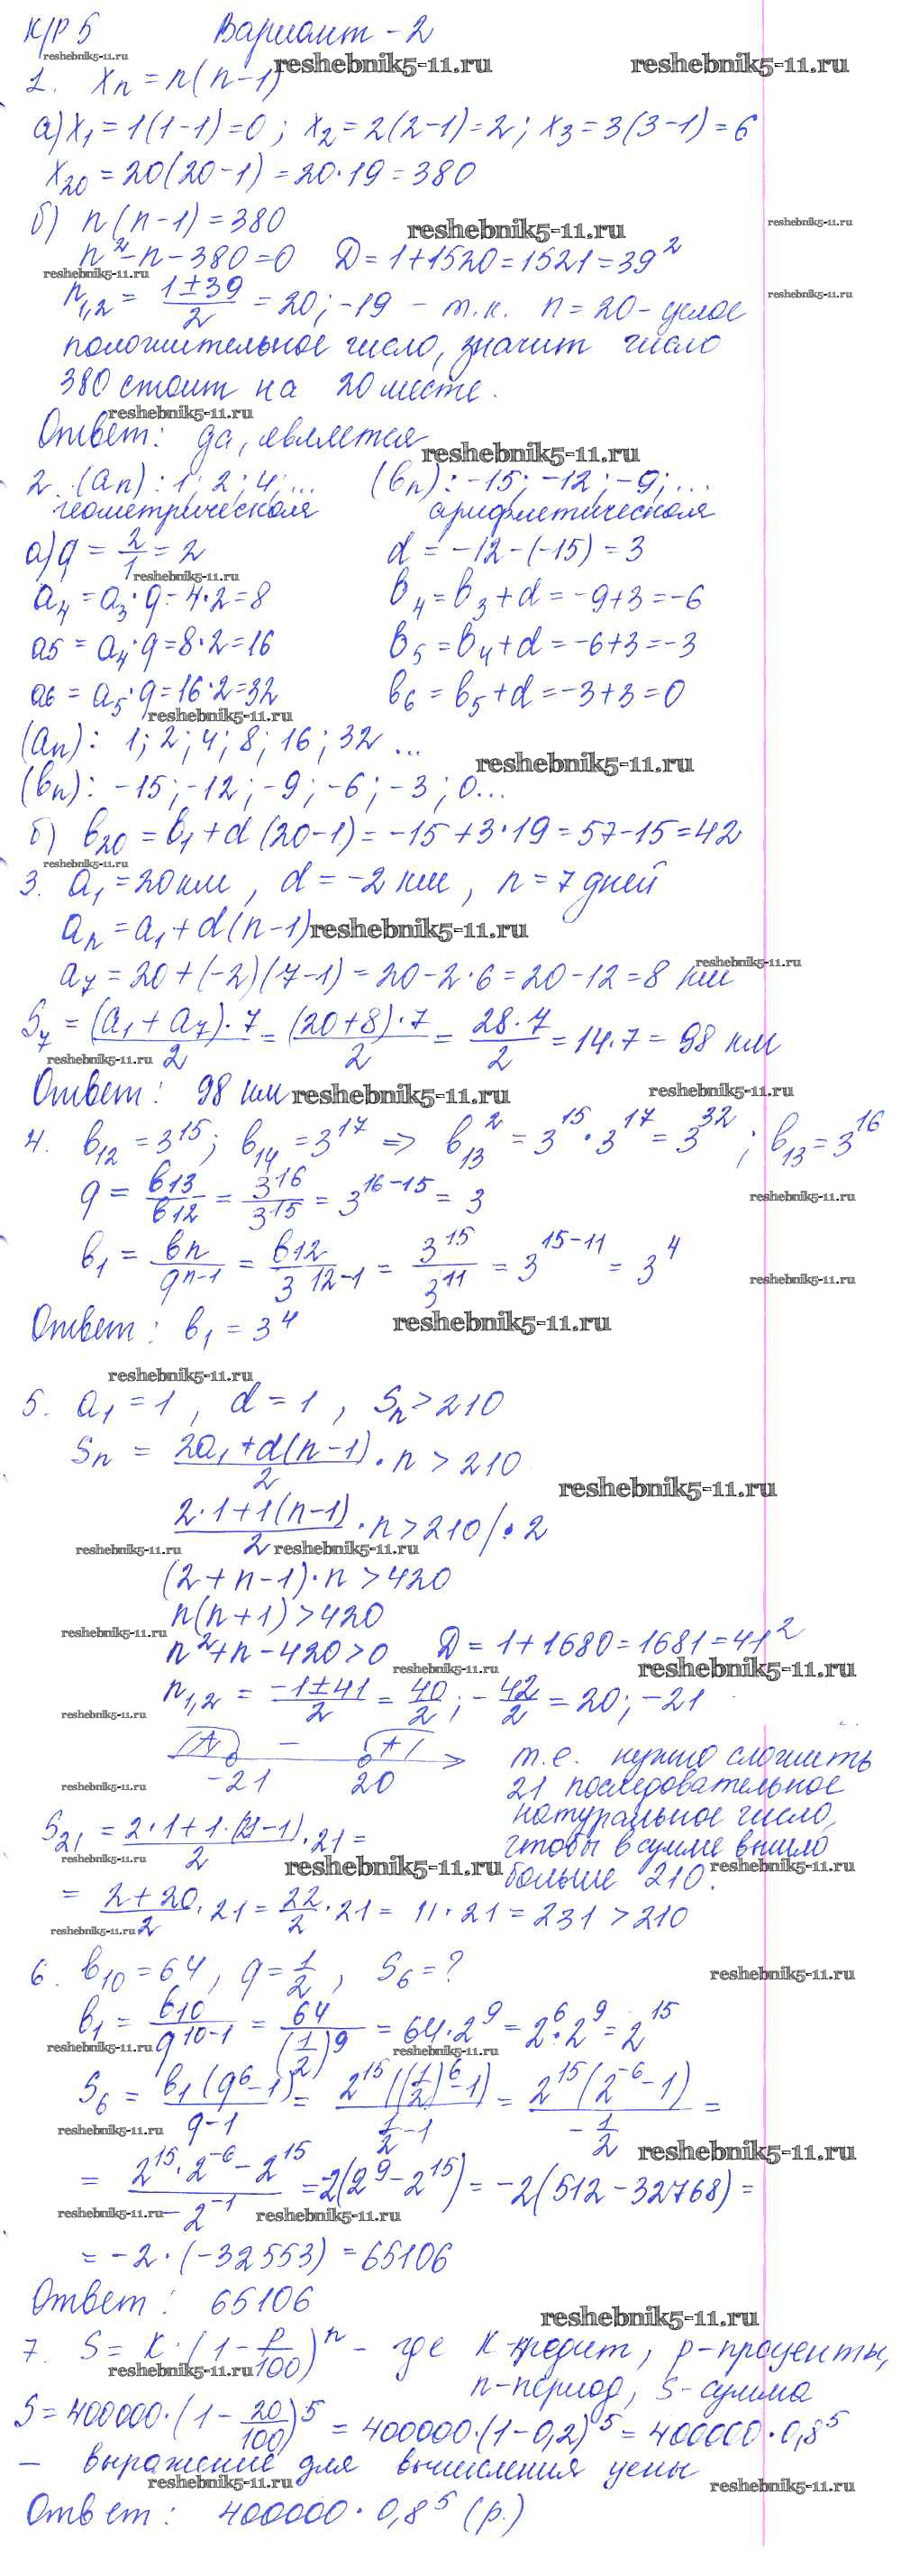 К/Р 5 Вариант - 2
reshebnik5-11.ru reshebnik5-11.ru reshebnik5-11.ru
1. xn = n(n-1)
а) x1 = 1(1-1) = 0; x2 = 2(2-1) = 2; x3 = 3(3-1) = 6
x20 = 20(20-1) = 20·19 = 380
б) n(n-1) = 380
reshebnik5-11.ru reshebnik5-11.ru
n²-n-380=0 D = 1+1520 = 1521 = 39²
reshebnik5-11.ru
n1,2 = (1±39)/2 = 20; -19 - т.к. n = 20 - целое
reshebnik5-11.ru
положительное число, значит число
380 стоит на 20 месте.
reshebnik5-11.ru
Ответ: да, является
reshebnik5-11.ru
2. (an): 1; 2; 4; ... (bn): -15; -12; -9; ...
геометрическая арифметическая
а) q = 2/1 = 2 d = -12-(-15) = 3
reshebnik5-11.ru
a4 = a3·q = 4·2=8 b4 = b3+d = -9+3 = -6
a5 = a4·q = 8·2=16 b5 = b4+d = -6+3 = -3
a6 = a5·q = 16·2=32 b6 = b5+d = -3+3 = 0
reshebnik5-11.ru
(an): 1; 2; 4; 8; 16; 32 ...
reshebnik5-11.ru
(bn): -15; -12; -9; -6; -3; 0...
б) b20 = b1 + d(20-1) = -15+3·19 = 57-15 = 42
reshebnik5-11.ru
3. a1 = 20км, d = -2 км, n = 7 дней
an = a1 + d(n-1)
reshebnik5-11.ru
a7 = 20+(-2)(7-1) = 20-2·6 = 20-12 = 8 км
reshebnik5-11.ru
S7 = (a1+a7)·7/2 = (20+8)·7/2 = 28·7/2 = 14·7 = 98 км
reshebnik5-11.ru
Ответ: 98 км
reshebnik5-11.ru reshebnik5-11.ru
4. b12 = 3^15; b14 = 3^17 => b13² = 3^15·3^17 = 3^32; b13 = 3^16
q = b13/b12 = 3^16/3^15 = 3^(16-15) = 3
reshebnik5-11.ru
b1 = bn/q^(n-1) = b12/3^(12-1) = 3^15/3^11 = 3^(15-11) = 3^4
reshebnik5-11.ru
Ответ: b1 = 3^4
reshebnik5-11.ru
reshebnik5-11.ru
5. a1 = 1, d = 1, Sn > 210
Sn = (2a1+d(n-1))/2 · n > 210
reshebnik5-11.ru
(2·1+1(n-1))/2 · n > 210 /·2
reshebnik5-11.ru reshebnik5-11.ru
(2+n-1)·n > 420
n(n+1) > 420
reshebnik5-11.ru
n²+n-420>0 D = 1+1680 = 1681 = 41²
reshebnik5-11.ru reshebnik5-11.ru
n1,2 = (-1±41)/2 = 40/2; -42/2 = 20; -21
reshebnik5-11.ru
+ - + т.е. нужно сложить
-21 20 21 последовательное
reshebnik5-11.ru
натуральное число,
S21 = (2·1+1·(21-1))/2·21 = чтобы в сумме вышло
reshebnik5-11.ru reshebnik5-11.ru reshebnik5-11.ru
больше 210.
= (2+20)/2·21 = 22/2·21 = 11·21 = 231 > 210
reshebnik5-11.ru
6. b10 = 64, q = 1/2, S6 = ?
reshebnik5-11.ru
b1 = b10/q^(10-1) = 64/(1/2)^9 = 64·2^9 = 2^6·2^9 = 2^15
reshebnik5-11.ru reshebnik5-11.ru
S6 = b1(q^6-1)/(q-1) = 2^15((1/2)^6-1)/(1/2-1) = 2^15(2^-6-1)/(-1/2) =
reshebnik5-11.ru reshebnik5-11.ru
= (2^15·2^-6-2^15)/(-2^-1) = -2(2^9-2^15) = -2(512-32768) =
reshebnik5-11.ru reshebnik5-11.ru
= -2·(-32553) = 65106
Ответ: 65106
reshebnik5-11.ru
7. S = K·(1-p/100)^n - где K-кредит, p-проценты,
reshebnik5-11.ru
n-период, S-сумма
S = 400000·(1-20/100)^5 = 400000·(1-0,2)^5 = 400000·0,8^5
- выражение для вычисления цены
reshebnik5-11.ru reshebnik5-11.ru
Ответ: 400000·0,8^5 (р.)